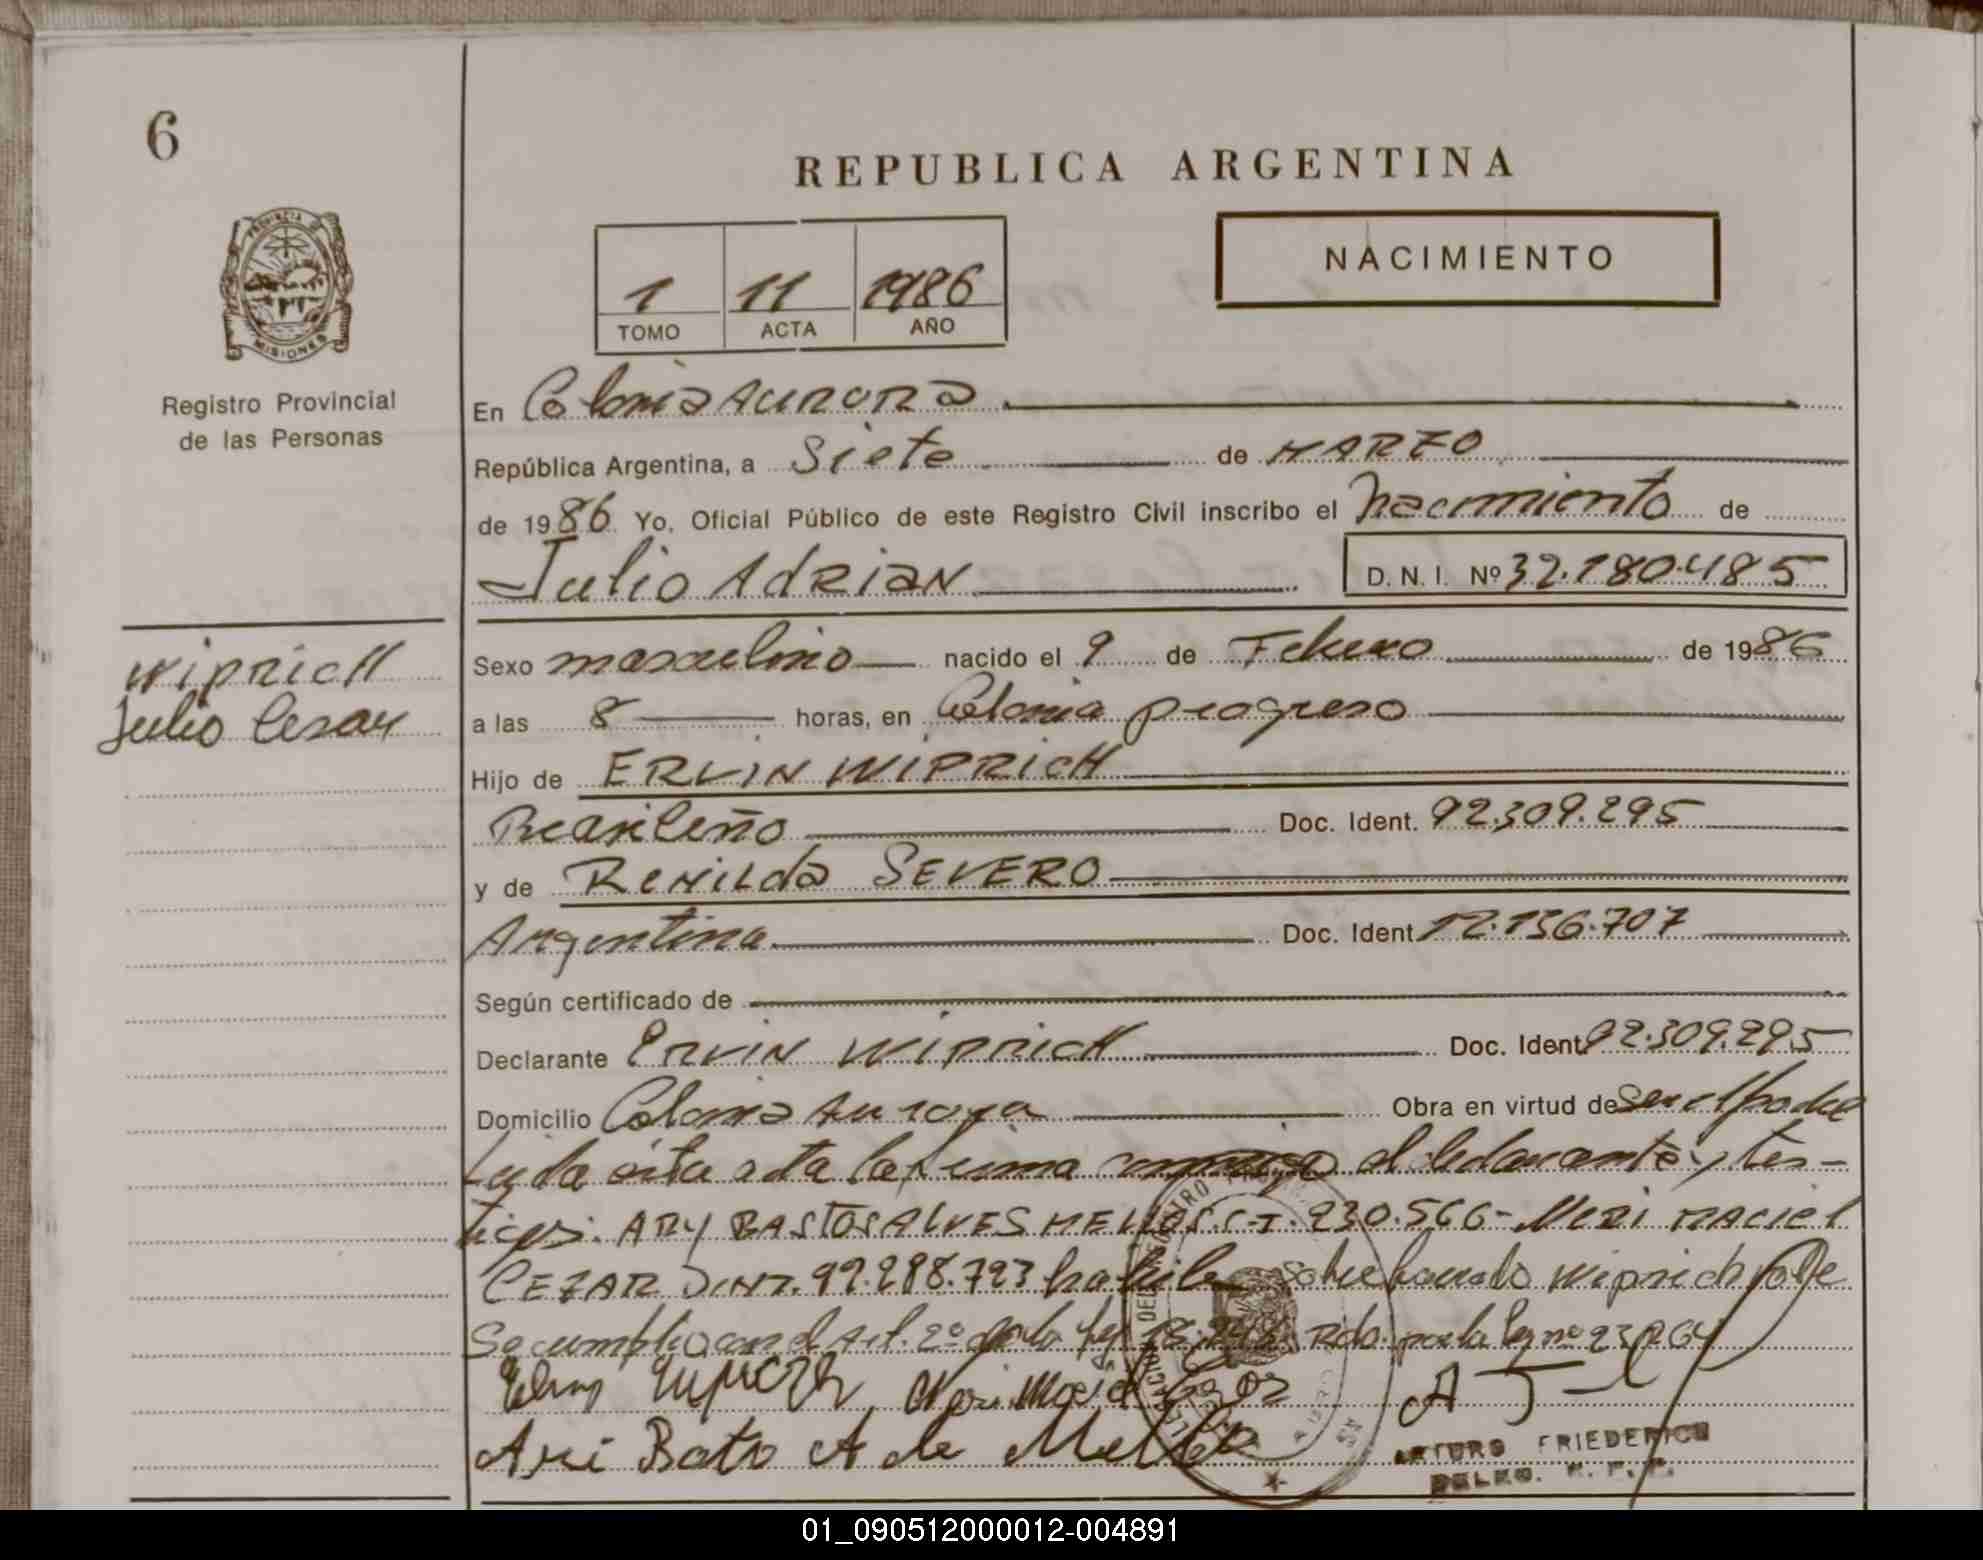 6
REPUBLICA ARGENTINA
NACIMIENTO
1 11 1986
TOMO ACTA AÑO
PROVINCIA DE MISIONES
Registro Provincial
de las Personas
En Colonia Aurora
República Argentina, a Siete de MARZO
de 1986 Yo, Oficial Público de este Registro Civil inscribo el Nacimiento de
Julio AdRiaN D. N. I. Nº 32.180.485
WipRicH
Julio Cesar
Sexo masculino nacido el 9 de Febrero de 1986
a las 8 horas, en Colonia progreso
Hijo de ERVIN WIPRICH
Brasileño Doc. Ident. 92.309.295
y de RENILda SEVERO
Argentina Doc. Ident 12.136.707
Según certificado de
Declarante ERVIN WIPRICH Doc. Ident 92.309.295
Domicilio Colonia Aurora Obra en virtud de Ser el padre
Leida ésta acta la firma conmigo el declarante y tes-
tigos: ARY BASTOS ALVES MELLO S.C.I. 230.566- Meri MACIEL
CEZAR D.N.I. 92.288.723 Sobreborrado Wiprich vale
Se cumplió con el Art. 2º de la ley 18. por la ley nº 23264
Ari Bato A de Mello
ARTURO FRIEDERICH
DELEG. R. P. P.
01_090512000012-004891